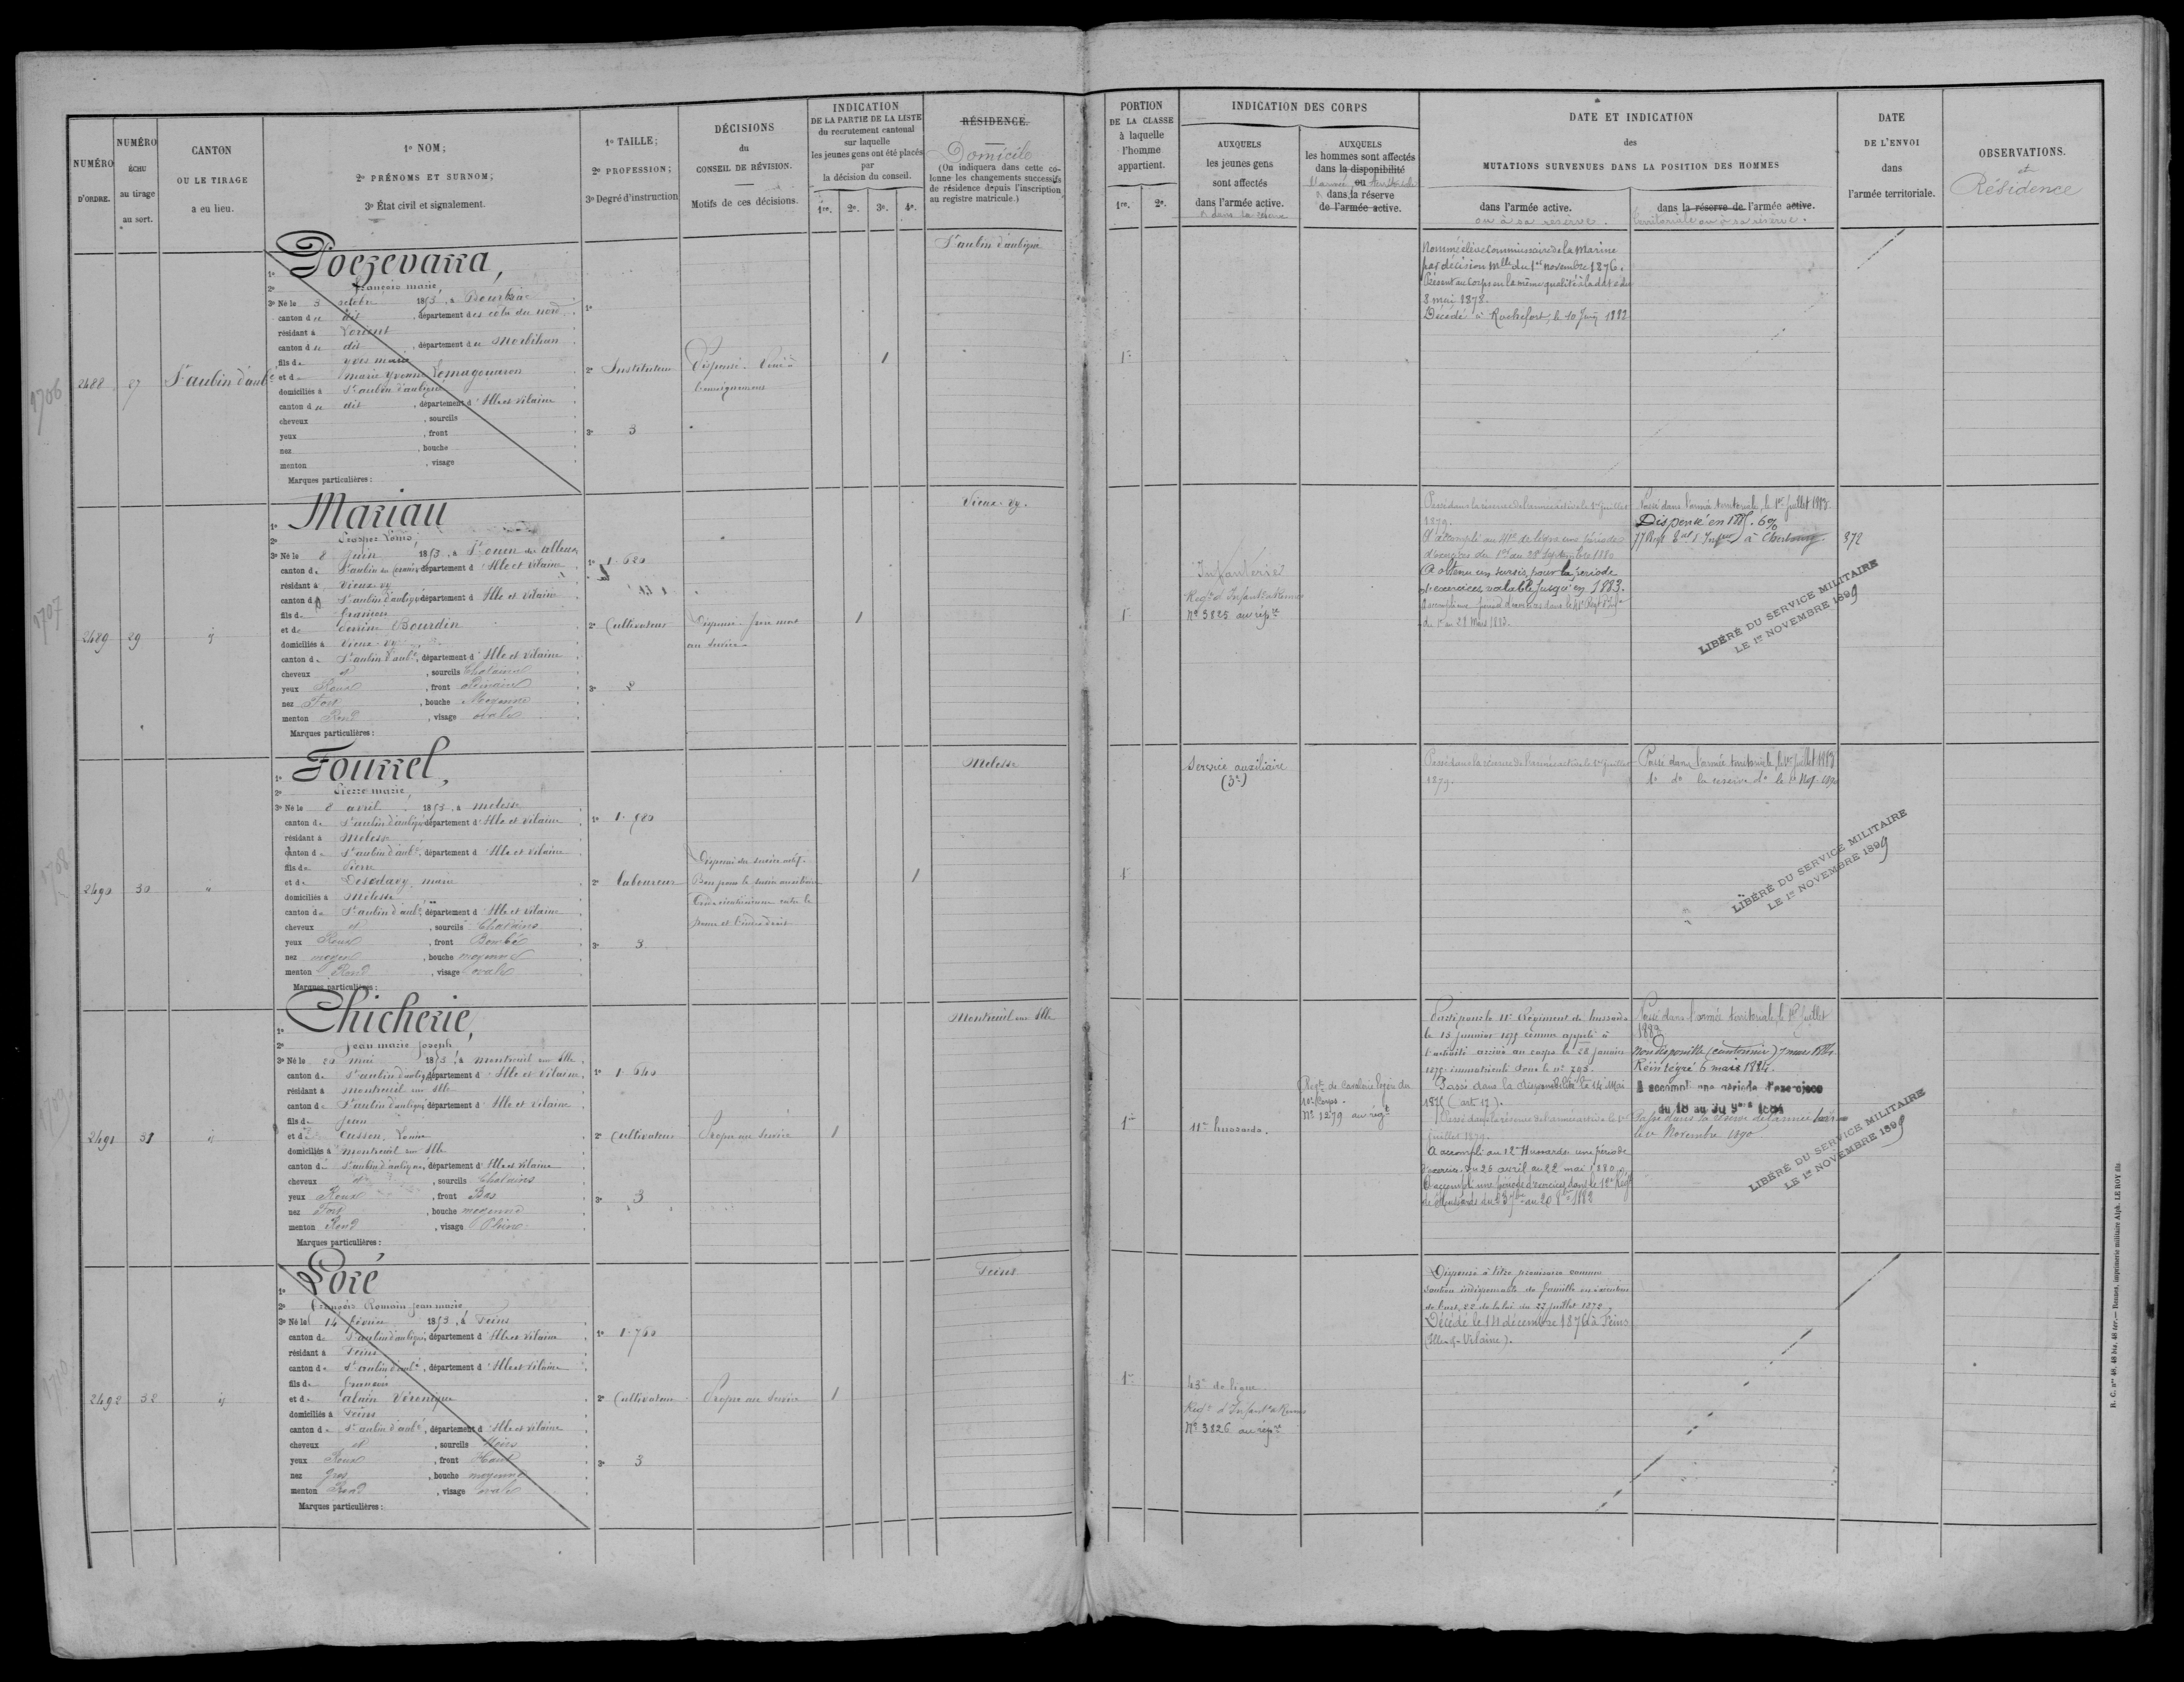 NUMÉRO D'ORDRE.
NUMÉRO ÉCHU au tirage au sort.
CANTON OU LE TIRAGE a eu lieu.
1º NOM;
2º PRÉNOMS ET SURNOM;
3º État civil et signalement.
1º TAILLE;
2º PROFESSION;
3º Degré d'instruction
DÉCISIONS du CONSEIL DE RÉVISION.
Motifs de ces décisions.
INDICATION
DE LA PARTIE DE LA LISTE
du recrutement cantonal
sur laquelle
les jeunes gens ont été placés
par
la décision du conseil.
1re. 2e. 3e. 4e.
RÉSIDENCE.
Domicile
(On indiquera dans cette co-
lonne les changements successifs
de résidence depuis l'inscription
au registre matricule.)
PORTION
DE LA CLASSE
à laquelle
l'homme
appartient.
1re. 2e.
INDICATION DES CORPS
AUXQUELS
les jeunes gens
sont affectés
dans l'armée active.
& dans la réserve
AUXQUELS
les hommes sont affectés
dans la disponibilité
ou
dans la réserve
de l'armée active.
DATE ET INDICATION
des
MUTATIONS SURVENUES DANS LA POSITION DES HOMMES
dans l'armée active.
ou à sa réserve.
dans la réserve de l'armée active.
territoriale ou à sa réserve.
DATE
DE L'ENVOI
dans
l'armée territoriale.
OBSERVATIONS.
et
Résidence
1706
2488
27
St aubin d'aubé
1º
2º françois marie,
3º Né le 3 octobre 1853, à
canton du dit, département des côtes du nord
résidant à Lorient
canton du dit, département du Morbihan
fils de yves marie
et de marie yvonne
domiciliés à St aubin d'aubigné
canton du dit, département d'Ille et Vilaine
cheveux, sourcils
yeux, front
nez, bouche
menton, visage
Marques particulières:
1º
2º Instituteur
3º 3
Dispensé. Voué à
l'enseignement
1
St aubin d'aubigné
1re
Nommé élève Commissaire de la Marine
par décision Mlle du 1er novembre 1876.
Présent au Corps en la même qualité à la date du
8 mai 1878.
Décédé à Rochefort, le 10 Juin 1882
1707
2489
29
ij
1º Mariau
2º Prosper Louis,
3º Né le 8 Juin 1853, à St ouen des alleux
canton de St aubin du Cormier département d'Ille et Vilaine
résidant à Vieux-vy
canton de St aubin d'aubigné département d'Ille et Vilaine
fils de françois
et de Perrine Bourdin
domiciliés à Vieux-vy
canton de St aubin d'aubé, département d'Ille et Vilaine
cheveux et, sourcils Chatains
yeux Roux, front Ordinaire
nez Fort, bouche Moyenne
menton Rond, visage ovale
Marques particulières:
1º 1.620
2º Cultivateur
3º 2
Dispensé. frère mort
au service
1
Vieux-vy.
1re
Infanterie
Regt d'Infant à Rennes
Nº 3825 au répre
Passé dans la réserve de l'armée active le 1er juillet
1879.
A accompli au 41e de ligne une période
d'exercices du 1er au 28 Septembre 1880
A obtenu un sursis, pour la période
d'exercices, valable jusqu'en 1883.
A accompli une période d'exercices dans le 41e Régt d'Infie
du 1er au 28 Mars 1883.
Passé dans l'armée territoriale, le 1er Juillet 1883.
77 Regt à Cherbourg
372
LIBÉRÉ DU SERVICE MILITAIRE
LE 1er NOVEMBRE 1899
1708
2490
30
"
1º Fourrel,
2º Pierre marie,
3º Né le 8 avril 1853, à melesse
canton de St aubin d'aubigné département d'Ille et Vilaine
résidant à Melesse
canton de St aubin d'aubé, département d'Ille et Vilaine
fils de Pierre
et de marie
domiciliés à Melesse
canton de St aubin d'aubé, département d'Ille et Vilaine
cheveux et, sourcils Chatains
yeux Roux, front Bombé
nez moyen, bouche moyenne
menton Rond, visage ovale
Marques particulières:
2º Laboureur
3º 3
Dispensé du service actif.
Bon pour le service auxiliaire
1
Melesse
1re
Service auxiliaire
(3e)
Passé dans la réserve de l'armée active le 1er juillet
1879.
Passé dans l'armée territoriale, le 1er Juillet 1883
do do la réserve do le 1er Nov. 1890
LIBÉRÉ DU SERVICE MILITAIRE
LE 1er NOVEMBRE 1899
1709
2491
31
ij
1º Chicherie,
2º Jean marie Joseph,
3º Né le 20 mai 1853, à montreuil sur Ille
canton de St aubin d'aubigné département d'Ille et Vilaine
résidant à montreuil sur Ille
canton de St aubin d'aubigné département d'Ille et Vilaine
fils de Jean
et de Cusson, Louise
domiciliés à montreuil sur Ille
canton de St aubin d'aubigné, département d'Ille et Vilaine
cheveux, sourcils Chatains
yeux Roux, front Bas
nez Fort, bouche moyenne
menton Rond, visage Plein
Marques particulières:
1º 1.640
2º Cultivateur
3º 3
Propre au service
1
Montreuil sur Ille
1re
11e hussards.
Regt de Cavalerie légère du
10e Corps.
Nº 1279 au régt
Parti pour le 11e Régiment de hussards
le 15 janvier 1875 comme appelé à
l'activité arrivé au corps le 28 janvier
1875 immatriculé sous le nº 703.
Passé dans la disponibilité le 14 Mai
1875 (art 17).
Passé dans la réserve de l'armée active le 1er
juillet 1879.
A accompli au 12e Hussards une période
d'exercices du 25 avril au 22 mai 1880.
A accompli une période d'exercices dans le 12e Régt
de Hussards du 23 7bre au 20 8bre 1882
Passé dans l'armée territoriale, le 1er Juillet
1883
Non disponible (cantonnier) 7 mars 1884.
Réintégré 6 mars 1884.
A accompli une période d'exercices
du 18 au 30 9bre 1884
Passé dans la réserve de l'armée territ
le 1er Novembre 1890
LIBÉRÉ DU SERVICE MILITAIRE
LE 1er NOVEMBRE 1899
1710
2492
32
ij
1º Loré
2º françois Romain Jean marie,
3º Né le 14 février 1853, à Feins
canton de St aubin d'aubigné, département d'Ille et Vilaine
résidant à Feins
canton de St aubin d'aubé, département d'Ille et Vilaine
fils de françois
et de Alain Véronique
domiciliés à Feins
canton de St aubin d'aubé, département d'Ille et Vilaine
cheveux et, sourcils Noirs
yeux Roux, front Haut
nez gros, bouche moyenne
menton Rond, visage ovale
Marques particulières:
1º 1.760
2º Cultivateur
3º 3
Propre au service
1
Feins
1re
43e de ligne
Regt d'Infant à Rennes
Nº 3826 au répre
Dispensé à titre provisoire comme
soutien indispensable de famille en exécution
de l'art. 22 de la loi du 27 juillet 1872.
Décédé le 14 décembre 1876 à Feins
(Ille-&-Vilaine).
R. C. nos 46, 46 bis, 46 ter. — Rennes, imprimerie militaire Alph. LE ROY fils